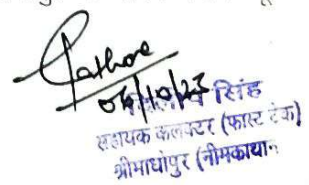 Rathore
04/10/23
सिंह
सहायक कलक्टर (फास्ट ट्रेक)
श्रीमाधोपुर (नीमकाथाना